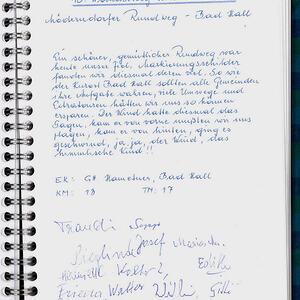 Möderndorfer Rundweg - Bad Hall
Ein schöner, gemütlicher Rundweg war
heute unser Ziel, Markierungsschilder
fanden wir diesmal deren viel. So wie
der Kurort Bad Hall sollten alle Gemeinden
ihre Aufgabe wahren, viele Umwege und
Extratouren hätten wir uns so können
ersparen. Der Wind hatte diesmal das
Sagen, kam er von vorne mußten wir uns
plagen, kam er von hinten, ging es
geschwind, ja, ja, der Wind, das
himmlische Kind!!
EK: GH Hametner, Bad Hall
KM: 13 TN: 17
Traudi Sepp
Sieglinde Josef
Edith
Walter Willi